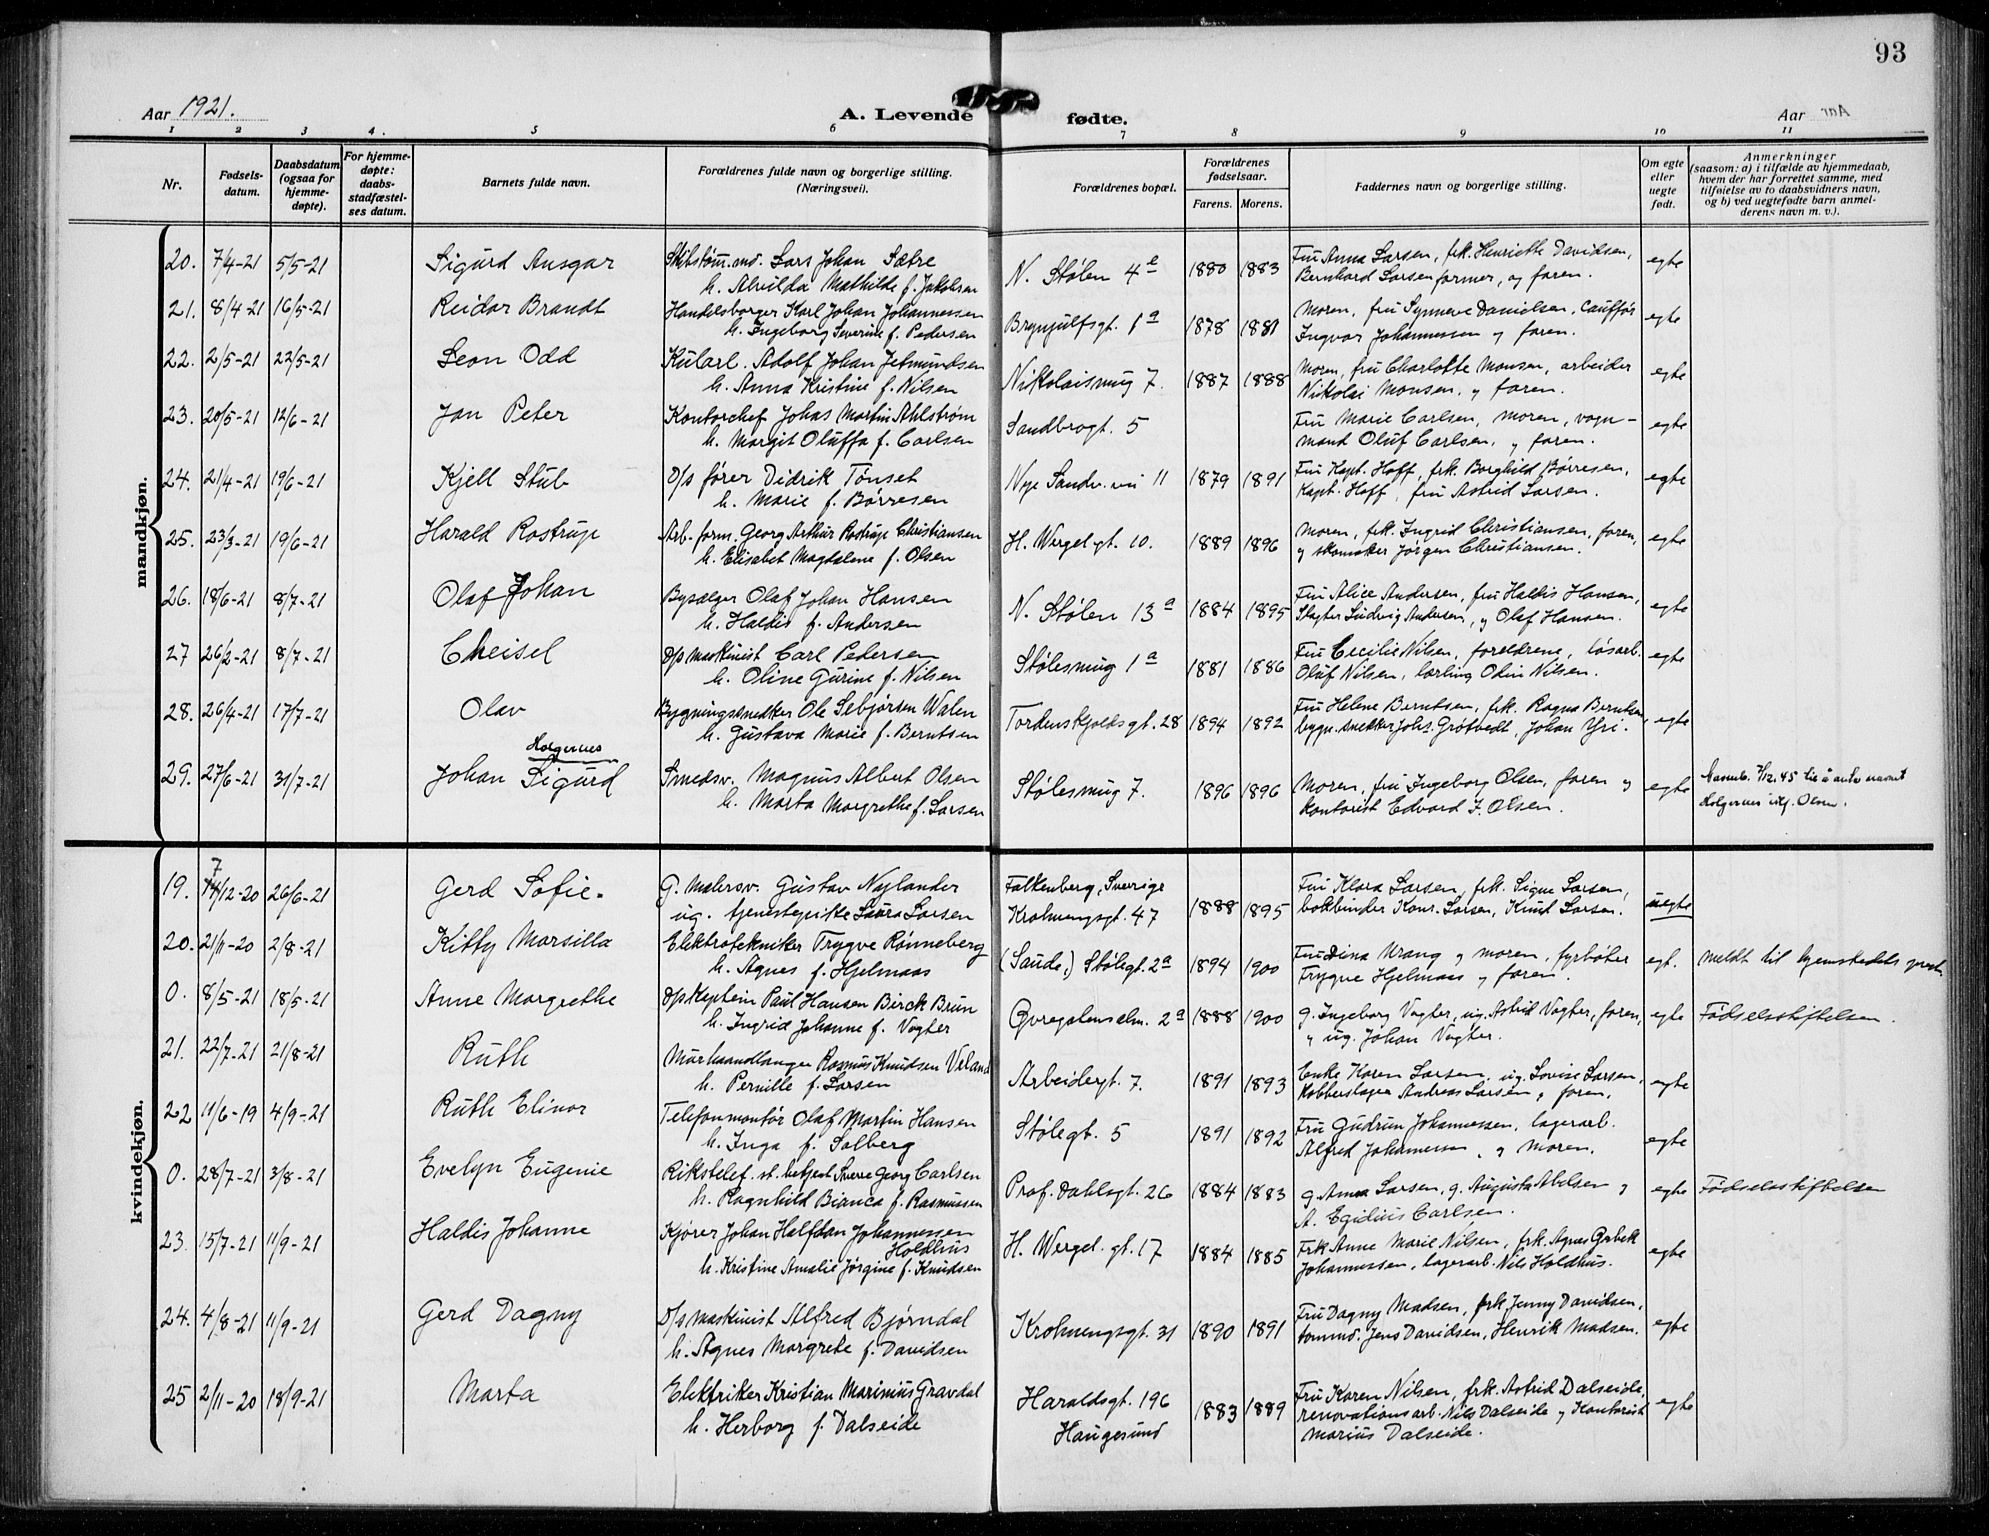 93
Aar 1921.
A. Levende fødte.
Aar
1 2 3 4. 5 6 7 8 9 10 11
Nr.
Fødsels-datum.
Daabsdatum (ogsaa for hjemme-døpte).
For hjemme-døpte: daabs-stadfæstel-ses datum.
Barnets fulde navn.
Forældrenes fulde navn og borgerlige stilling.
(Næringsvei).
Forældrenes bopæl.
Forældrenes fødselsaar.
Farens. Morens.
Faddernes navn og borgerlige stilling.
Om egte eller uegte født.
Anmerkninger
(saasom: a) i tilfælde av hjemmedaab,
hvem der har forrettet samme, med
tilføielse av to daabsvidners navn,
og b) ved uegtefødte barn anmel-
derens navn m. v.).
mandkjøn.
20. 7/4-21 5/5-21 Sigurd Ansgar Lars Johan Sætre N. Stølen 4e 1880 1883 Fru Anna Larsen, frk. Henriette Davidsen, egte
h. Alvilda Mathilde f. Jakobsen Bernhard Larsen former, og faren.
21. 8/4-21 16/5-21 Reidar Brandt Handelsborger Karl Johan Johannessen Brynjulfsgt. 1a 1878 1881 Moren, fru Synnøve Danielsen, egte
h. Ingeborg Severine f. Pedersen Ingvar Johannessen og faren.
22. 2/5-21 22/5-21 Leon Odd Kularb. Adolf Johan Jetmundsen Nikolaismug 7. 1887 1888 Moren, fru Charlotte Monsen, arbeider egte
h. Anna Kristine f. Nilsen Nikolai Monsen, og faren.
23. 20/5-21 12/6-21 Jan Peter Kontorchef Johas Martin Ahlstrøm Sandbrogt. 5 Fru Marie Carlsen, moren, vogn- egte
h. Margit Oluffa f. Carlsen mand Oluf Carlsen, og faren.
24. 21/4-21 19/6-21 Kjell Stub D/s fører Didrik Tønset Nye Sandv. vei 11 1879 1891 Fru Kapt. Hoff, frk. Borghild Børresen, egte
h. Marie f. Børresen Kapt. Hoff, fru Astrid Larsen.
25. 23/3-21 19/6-21 Harald Rostrup Arb. form. Georg Arthur Rostrup Christiansen H. Wergel. gt. 10. 1889 1896 Moren, frk. Ingrid Christiansen, faren, egte
h. Elisabet Magdalene f. Olsen og skomaker Jørgen Christiansen.
26. 18/6-21 8/7-21 Olaf Johan Bysælger Olaf Johan Hansen N. Stølen 13a 1884 1895 Fru Alice Andersen, fru Haldis Hansen, egte
h. Haldis f. Andersen Slagter Ludvig Andersen, og Olaf Hansen.
27 26/2-21 8/7-21 Cheisel D/s maskinist Carl Pedersen Stølesmug 1a 1881 1886 Fru Cecilie Nilsen, foreldrene, løsarb. egte
h. Oline Gurine f. Nilsen Oluf Nilsen, lærling Odin Nilsen.
28. 26/4-21 17/7-21 Olav Bygningssnedker Ole Sebjørsen Walen Tordenskjoldsgt. 28 1894 1892 Fru Helene Berntsen, frk. Ragna Berntsen, egte
h. Gustava Marie f. Berntsen bygn. snekker Johs. Grøtvedt, Johan Yri.
Holgernes
29. 27/6-21 31/7-21 Johan Sigurd Smedsv. Magnus Albert Olsen Stølesmug 7. 1896 1896 Moren, fru Ingeborg Olsen, faren og egte Navneb. 7/12.45 til å anta navnet
h. Marta Margrethe f. Larsen kontorist Edvard I. Olsen. Holgernes istf. Olsen.
kvindekjøn.
19. 7/12-20 26/6-21 Gerd Sofie. G. malersv. Gustav Najlander Falkenberg, Sverige 1888 1895 Fru Klara Larsen, frk. Signe Larsen, uegte
ug. tjenestepike Laura Larsen Krohnengsgt. 47 bokbinder Konr. Larsen, Knut Larsen.
20. 21/11-20 2/8-21 Kitty Marsilla Elektrotekniker Trygve Rønneberg (Saude,) Stølegt. 2a 1894 1900 Fru Dina Wrang og moren, fyrbøter egt. meldt til hjemstedets prest.
h. Agnes f. Hjelmaas Trygve Hjelmaas og faren.
0. 8/5-21 18/5-21 Anne Margrethe D/s Kaptein Paul Hansen Birck Brun Øvregatensalm. 2a 1888 1900 g. Ingeborg Vogter, ug. Astrid Vogter, faren, egte Fødselsstiftelsen.
h. Ingrid Johanne f. Vogter og ug. Johan Vogter.
21. 22/7-21 21/8-21 Ruth Murhaandlanger Rasmus Knudsen Veland Arbeidergt. 7. 1891 1893 Enke Karen Larsen, ug. Lovise Larsen, egte
h. Pernille f. Larsen Kobberslager Andreas Larsen og faren.
22 11/6-19 4/9-21 Ruth Elinor Telefonmontør Olaf Martin Hansen Stølegt. 5 1891 1892 Fru Gudrun Johannessen, lagerarb. egte
h. Inga f. Solberg Alfred Johannessen og moren.
0. 28/7-21 3/8-21 Evelyn Eugenie Rikstelef. st. betjent Sverre Georg Carlsen Prof. Dahlsgt. 26 1884 1883 g. Anna Larsen, g. Augusta Abelsen og egte Fødselsstiftelsen
h. Ragnhild Bianca f. Rasmussen A. Egidius Carlsen.
23. 15/7-21 11/9-21 Haldis Johanne Kjører Johan Halfdan Johannessen Holdhus H. Wergel. gt. 17 1884 1885 Frk. Anne Marie Nilsen, frk. Agnes egte
h. Kristine Amalie Jørgine f. Knudsen Johannessen, lagerarb. Nils Holdhus.
24. 4/8-21 11/9-21 Gerd Dagny D/s maskinist Alfred Bjørndal Krohnengsgt. 31 1890 1891 Fru Dagny Madsen, frk. Jenny Davidsen, egte
h. Agnes Margrete f. Davidsen tømmd. Jens Davidsen, Henrik Madsen.
25 2/11-20 18/9-21 Marta Elektriker Kristian Marinius Gravdal Haraldsgt. 196 1883 1889 Fru Karen Nilsen, frk. Astrid Dalseide, egte
h. Herborg f. Dalseide Haugesund renovationsarb. Nils Dalseide og Kontorist
Marius Dalseide.